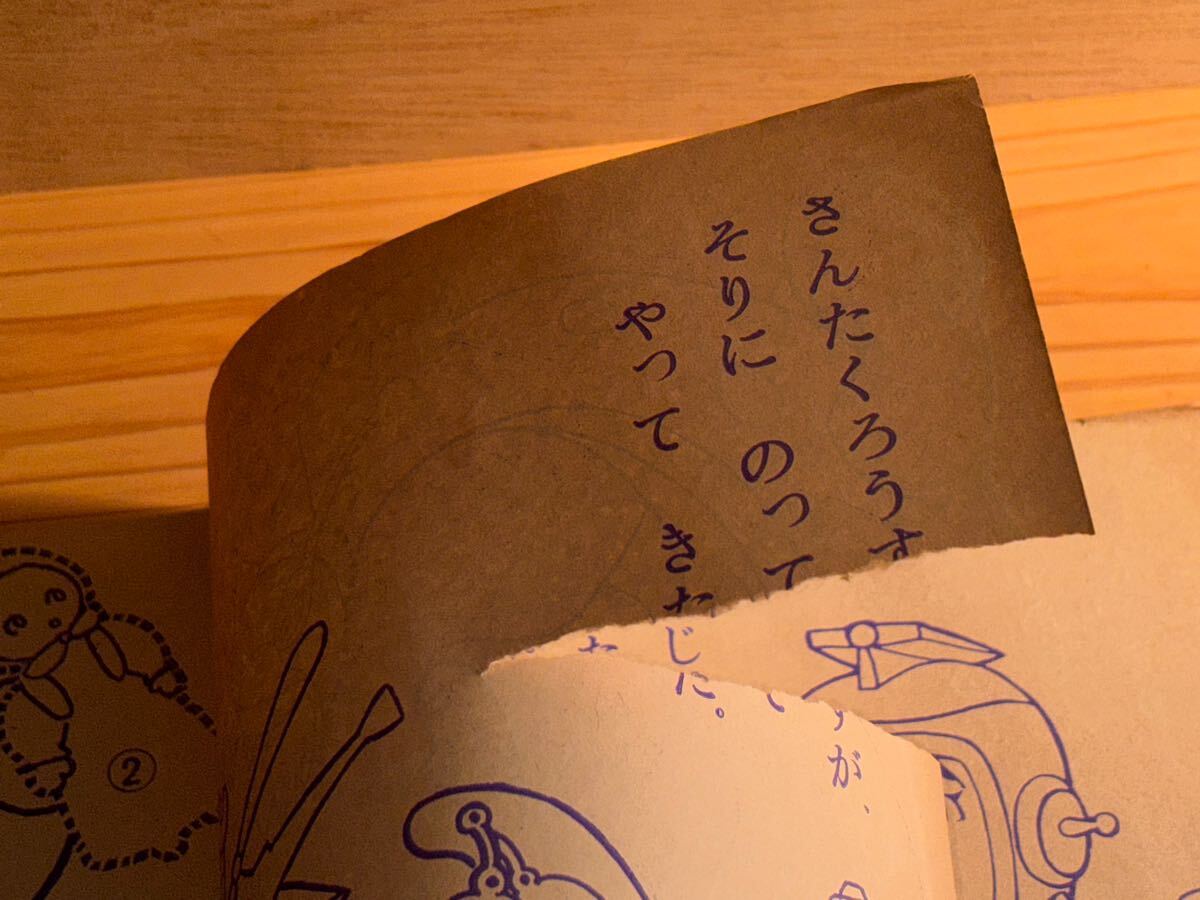 さんたくろうす
が、
そりに のって
やって きた
じに。
②